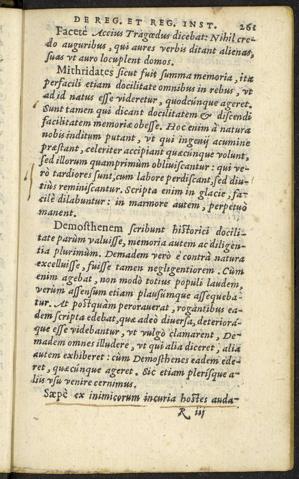 DE REG. ET REG. INST. 261
Facetè Accius Tragœdus dicebat: Nihil cre-
do auguribus, qui aures verbis ditant alienas,
suas vt auro locuplent domos.
Mithridates sicut fuit summa memoria, ita
perfacili etiam docilitate omnibus in rebus, vt
ad id natus esse videretur, quodcúnque ageret.
Sunt tamen qui dicant docilitatem & discendi
facilitatem memoriæ obesse. Hoc enim à natura
nobis inditum putant, vt qui ingenij acumine
præstant, celeriter accipiant quæcúnque volunt,
sed illorum quamprimùm obliuiscantur: qui ve-
rò tardiores sunt, cum labore perdiscant, sed diu-
tiùs reminiscantur. Scripta enim in glacie, fa-
cilè dilabuntur: in marmore autem, perpetuò
manent.
Demosthenem scribunt historici docili-
tate parùm valuisse, memoria autem ac diligen-
tia plurimùm. Demadem verò è contrà natura
excelluisse, fuisse tamen negligentiorem. Cùm
enim agebat, non modò totius populi laudem,
verùm assensum etiam plausúmque assequeba-
tur. At postquàm perorauerat, rogantibus ea-
dem scripta edebat, quæ adeò diuersa, deteriorá-
que esse videbantur, vt vulgò clamarent, De-
madem omnes illudere, vt qui alia diceret, alia
autem exhiberet: cùm Demosthenes eadem ede-
ret, quæcúnque ageret. Sic etiam plerísque a-
liis vsu venire cernimus.
Sæpè ex inimicorum incuria hostes auda-
R iij